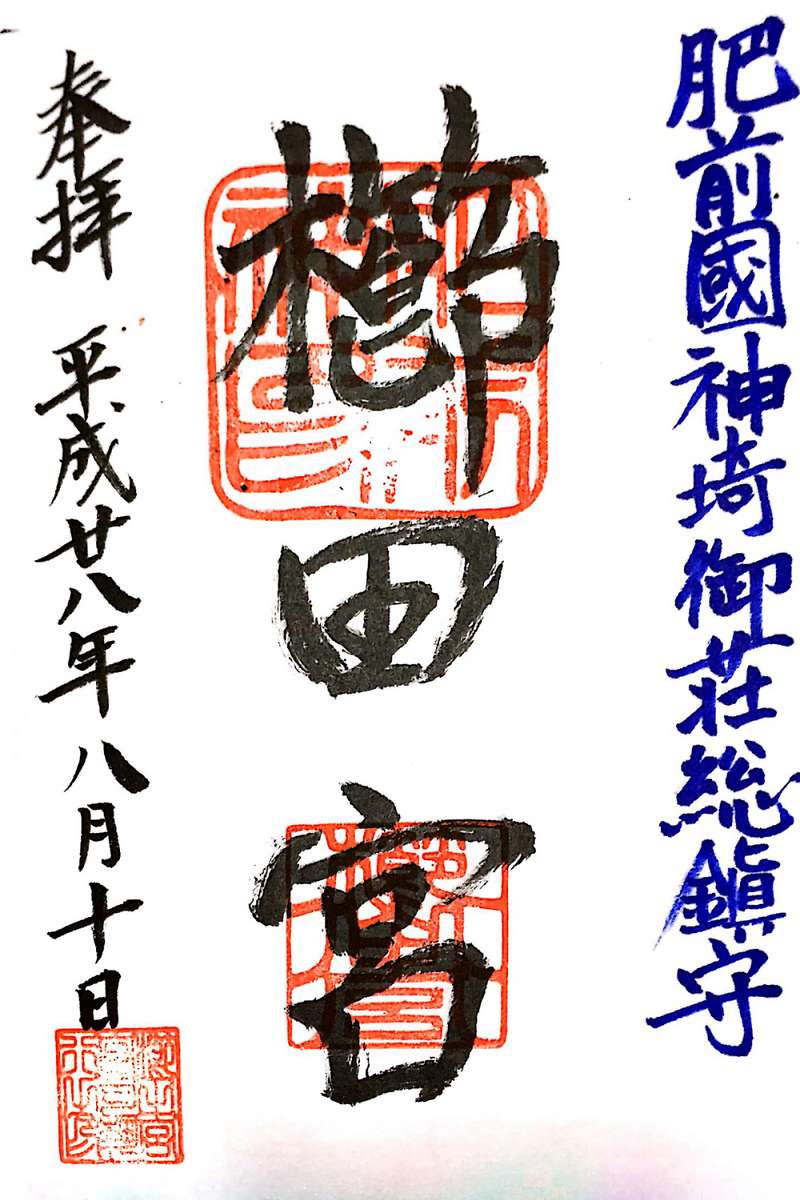 肥前國神埼御荘総鎮守
櫛田宮
奉拝 平成廿八年八月十日